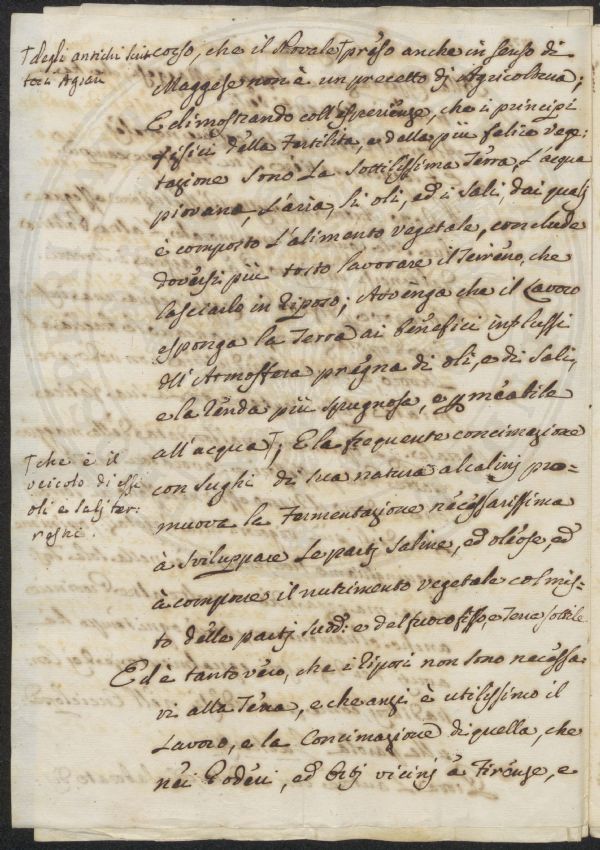 †degli antichi Scrit-
tori Agrari
corso, che il Novale† preso anche in senso di
Maggese non è un precetto di Agricoltura;
E dimostrando coll'esperienze, che i principj
fisici della Fertilità, e della più felice vege-
tazione sono La sottilissima Terra, L'acqua
piovana, L'aria, Li oli, ed i Sali, dai qualj
è composto L'alimento vegetale, conclude
doversi più tosto lavorare il Terreno, che
lasciarlo in Riposo; Avvenga che il Lavoro
esponga la Terra ai benefici influssi
dll'Atmosfera pregna di oli, e di Sali,
e la renda più spugnosa, e pmeabile
all'acqua†; E la frequente concimazione
†che è il
veicolo di essi
oli e Salj ter-
restri.
con Sughi di sua natura alcalinj pro-
muova la Fermentazione necessarissima
à sviluppare Le partj Saline, ed oleose, ed
à comporre il nutrimento vegetale col mis-
to delle partj sudd: e del fuoco fisso, e Terra sottile
Ed è tanto vero, che i Riposi non sono necessa-
rj alla Terra, e che anzi è utilissimo il
Lavoro, e la Concimazione di quella, che
nei Poderi, ed Ortj vicinj à Firenze, e